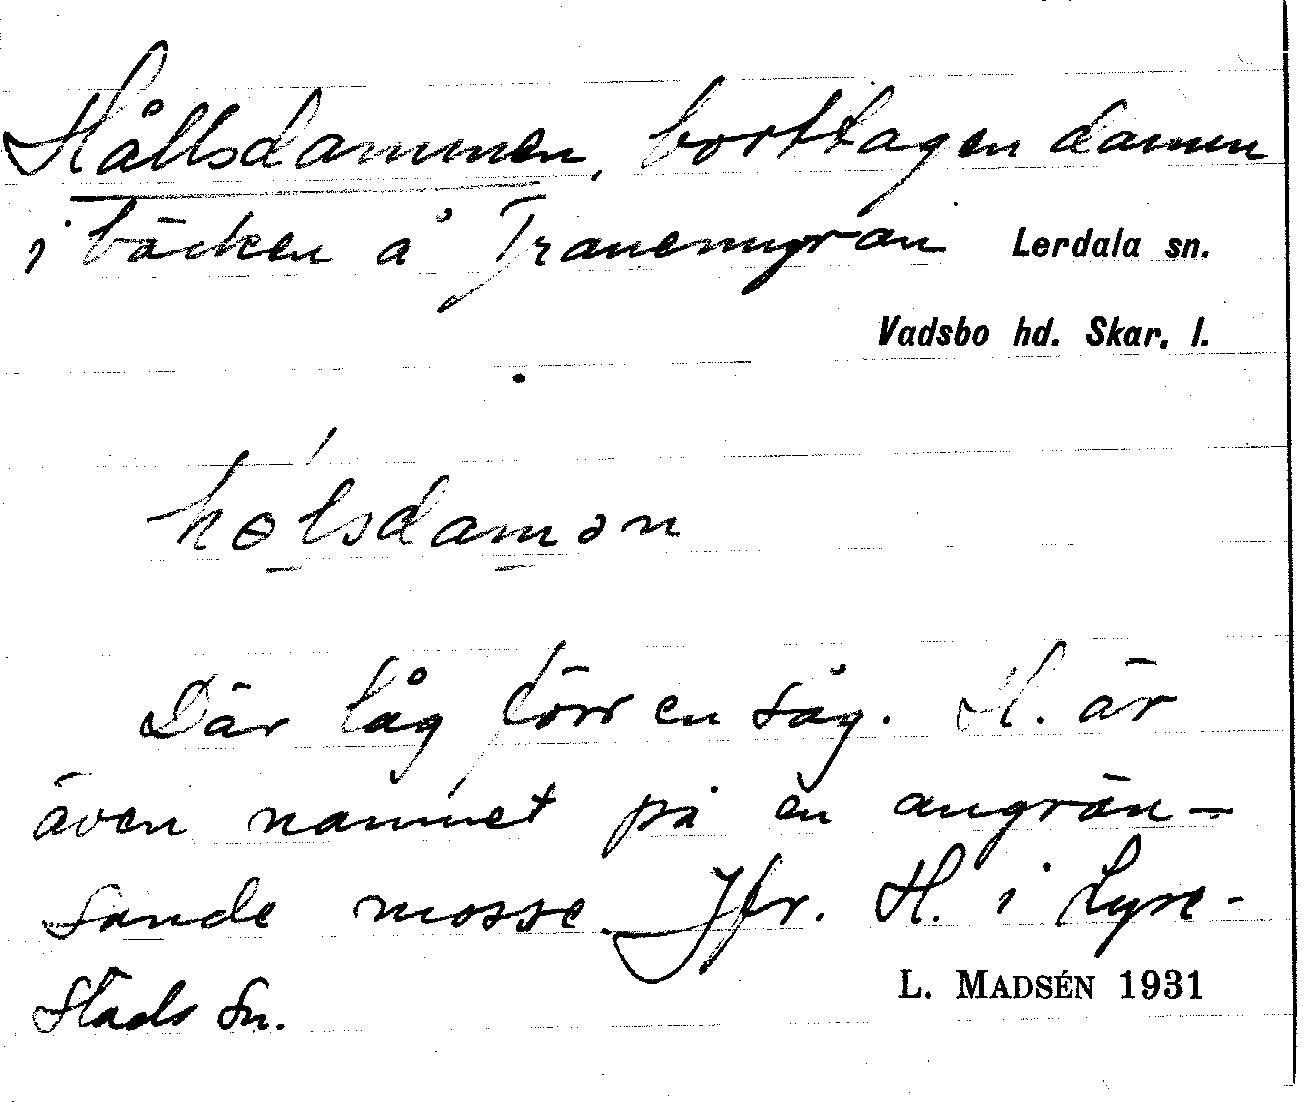 Hållsdammen, borttagen damm
i bäcken å Tranemyran Lerdala sn.
Vadsbo hd. Skar. l.
hɵlsdamən
Där låg förr en såg. H. är
även namnet på en angrän-
sande mosse. Jfr. H. i Lyre-
stads sn.
L. MADSÉN 1931